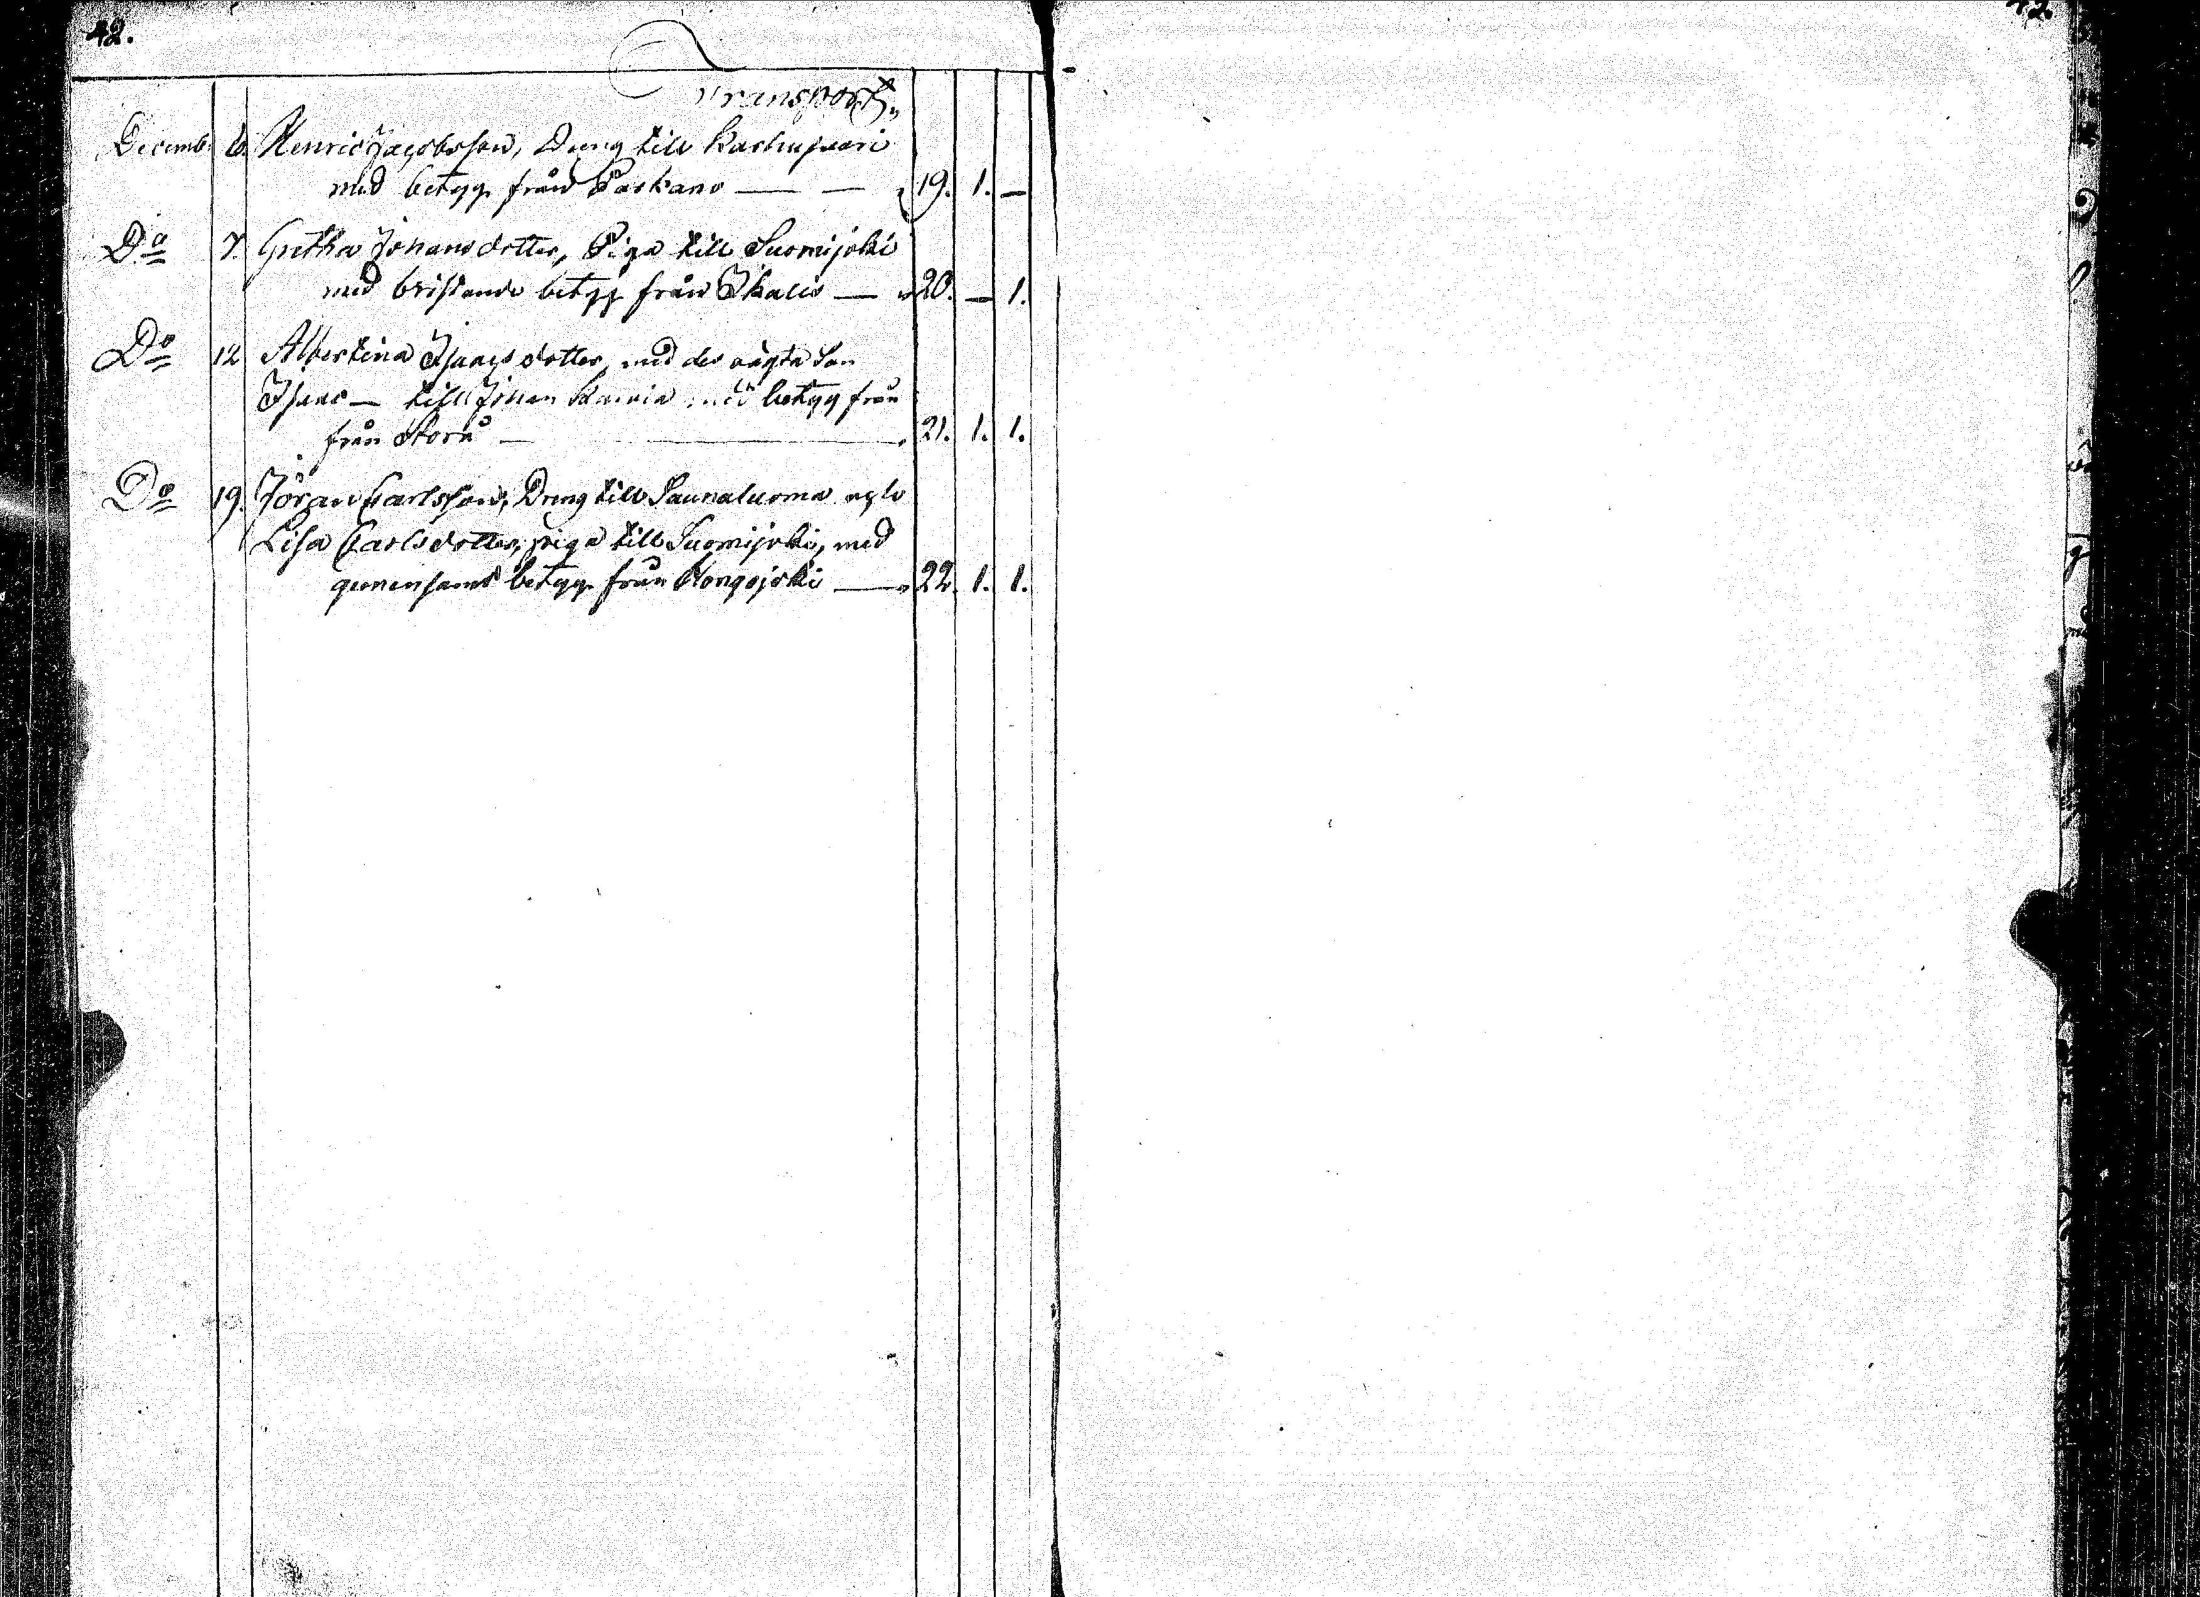 42.
42.
Transport,,
Decemb. 6. Henric Jacobsson, Dreng till Karhuvuori
med betyg från Parkano — — 19. 1. —
Do 7. Gretha Johansdotter, Piga till Suomijoki
med bristande betyg från Ikalis — 20. — 1.
Do 12 Albertina Isaacsdotter, med des oägta Son
Isaac — till Johan med betyg från
från Storå — 21. 1. 1.
Do 19. Jöran Carlsson, Dreng till Saunaluoma och
Lisa Carlsdotter, piga till Suomijoki, med
gemensamt betyg från Kongojoki — 22. 1. 1.